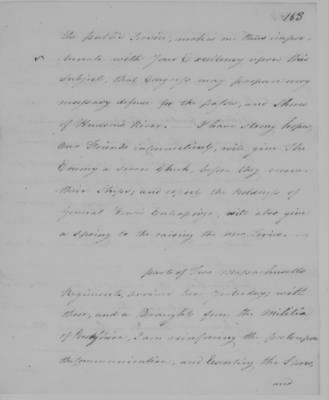 163
the public Service, makes me thus impor-
tunate with Your Excellency upon this
Subject, that Congress may prepare every
necessary defence for the passes, and Shores
of Hudsons River. I have strong hopes,
our Friends in Connecticut, will give The
Enemy a severe Check, before they recover
their Ships, and expect the boldness of
General Enterprize, will also give
a spring to the raising the new Levies.
parts of Two Massachusetts
Regiments, arrived here yesterday; with
these, and a Draught from the Militia
of I am reinforcing the
the Communication, and the
and